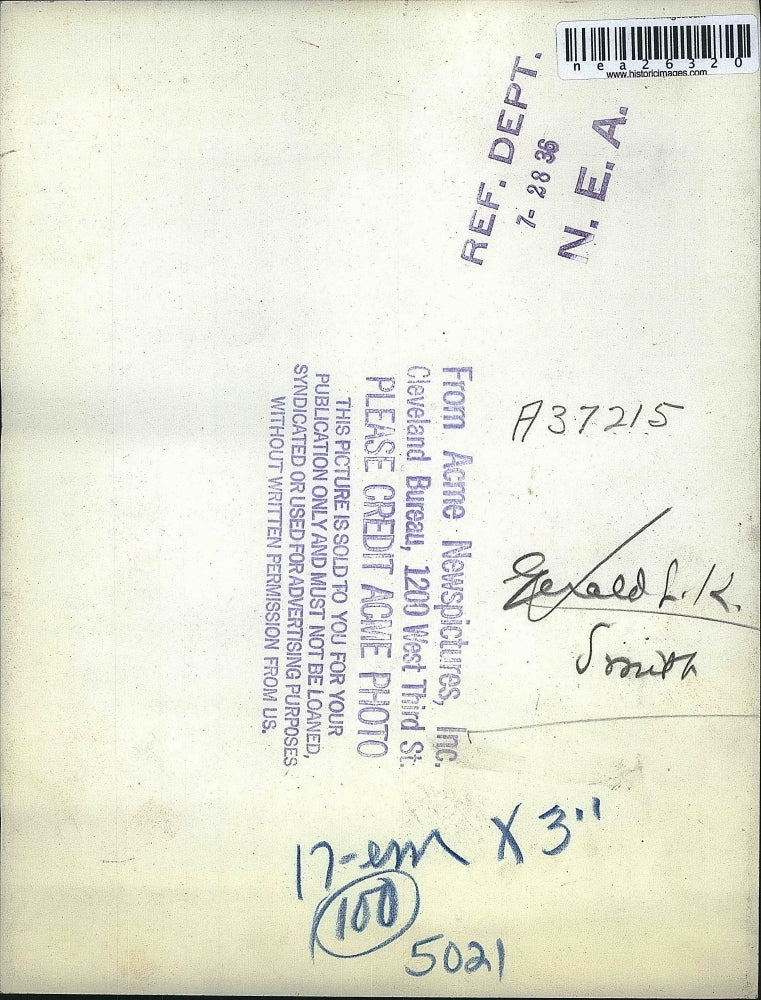 nea26320
www.historicimages.com
REF. DEPT.
7- 28 36
N. E. A.
From Acme Newspictures, Inc.
Cleveland Bureau, 1200 West Third St.
PLEASE CREDIT ACME PHOTO
THIS PICTURE IS SOLD TO YOU FOR YOUR
PUBLICATION ONLY AND MUST NOT BE LOANED,
SYNDICATED OR USED FOR ADVERTISING PURPOSES
WITHOUT WRITTEN PERMISSION FROM US.
A37215
Gerald L. K.
Smith
17-em X 3"
100
5021